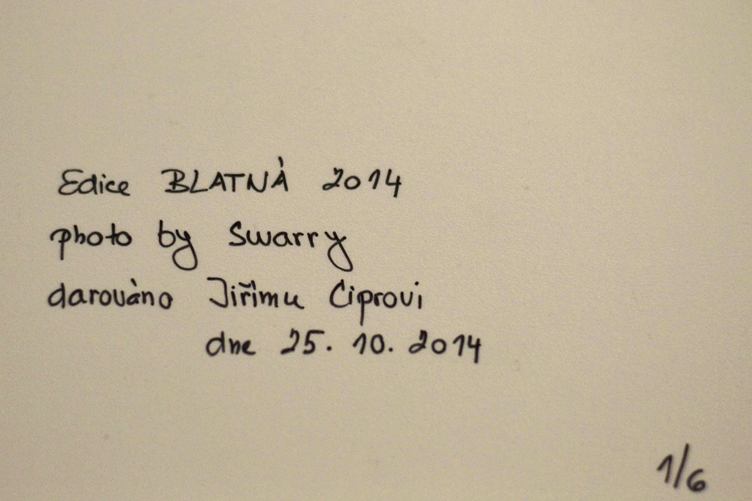 Edice BLATNÁ 2014
photo by Swarry
darováno Jiřímu Ciprovi
dne 25. 10. 2014
1/6